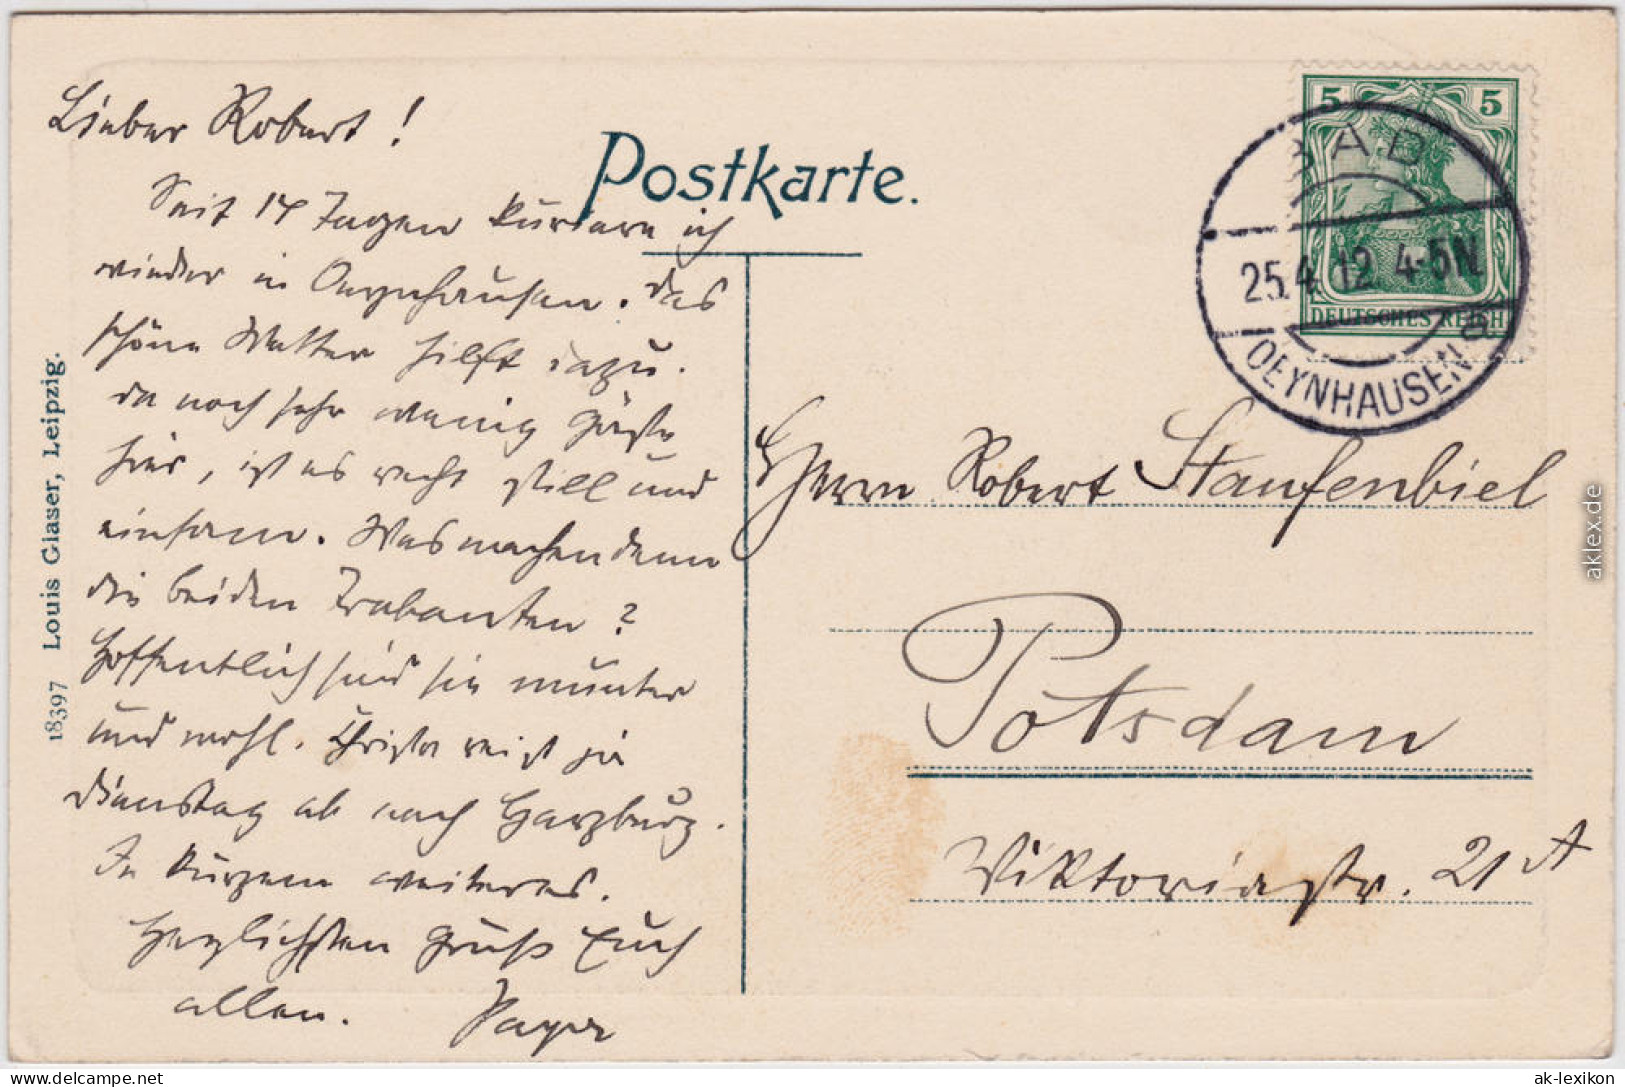 Lieber Robert!
Seit 14 Tagen kuriere ich
wieder in Oeynhausen. Das
schöne Wetter hilft dazu.
da noch sehr wenig Gäste
hier, ist es recht still und
einsam. Was machen denn
die beiden Trabanten?
Hoffentlich sind sie munter
und wohl. reist
Dienstag ab nach Harzburg.
In kurzem weiteres.
Herzlichsten Gruß Euch
allen.
Postkarte.
5 5
DEUTSCHES REICH
BAD
25.4.12 4-5N.
OEYNHAUSEN a
Herrn Robert Staufenbiel
Potsdam
Viktoriastr. 21 A
18397 Louis Glaser, Leipzig.
aklex.de
delcampe.net
ak-lexikon